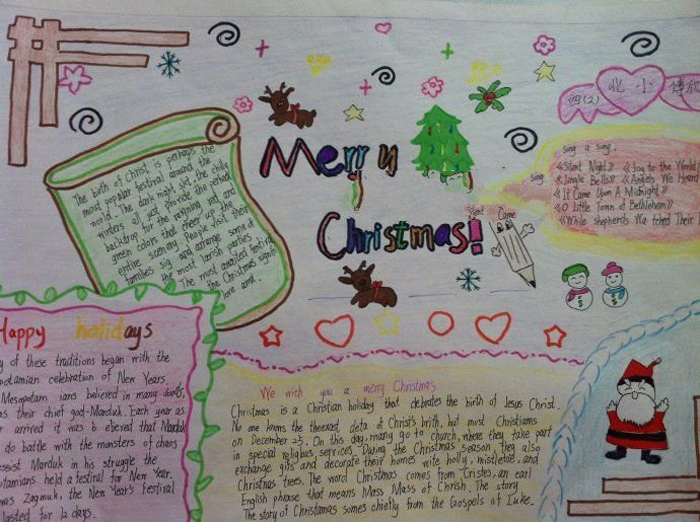 Merry
Christmas!
四(2) 北小
sing a song
sing
《Silent Night》 《Joy to the World》
《Jingle Bells》 《Angels We Heard
《It Came Upon A Midnight》
《O Little Town of Bethlehem》
《While shepherds Watched Their
The birth of Christ is perhaps the
most popular festival around the
world. The dark night yet the chilly
winters all just provide the perfect
backdrop for the reigning red, and
green colors that cheer up the
entire scenery. People visit their
families sig and arrange some of
the most lavish parties
The most awaited festival
the Christmas
Happy holidays
of these traditions began with the
potamian celebration of New Years.
Mesopotam ians believed in many
as their chief god-Marduk. Each year as
arrived it was b elieved that Marduk
do battle with the monsters of chaos
assist Marduk in his struggle the
otamians held a festival for New Year.
was Zagmuk, the New Year's festival
lasted for 12 days.
We wich you a merry Christmas
Christmas is a Christian holiday that clebrates the birth of Jesus Christ.
No one knows the theexact deta of Christ's brith, but most Christians
on December 25. On this day, many go to church, where they take part
in special religbus services. During the Christmas season, they also
exchange gifts and decorate their homes with holly, mistletoe, and
Christmas trees. The word Christmas comes from Cristes, an earl
English phrase that means Mass Mass of Christ. The story
The story of Christamas somes chiefly from the Gospels of Luke.